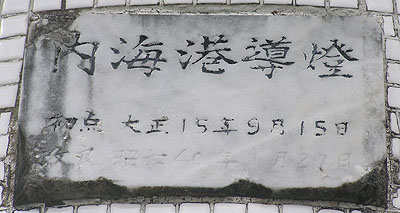 内海港導燈
初点 大正15年9月15日
改 昭和40年 月27日